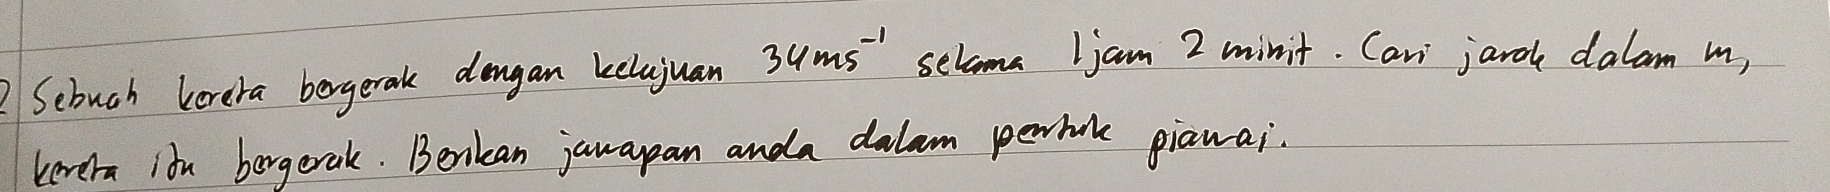 2 Sebuah kereta bergerak dengan kelajuan 34ms⁻¹ selama 1jam 2 minit. Cari jarak dalam m,
kereta itu bergerak. Berikan jawapan anda dalam pentuk piawai.